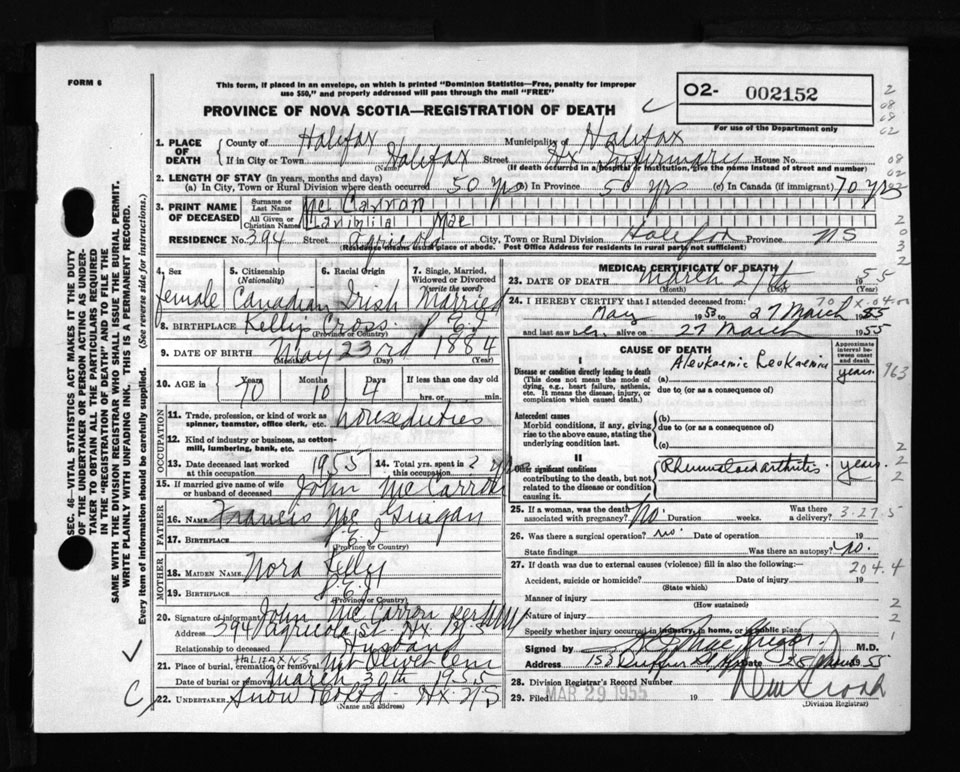 FORM 6
This form, if placed in an envelope, on which is printed "Dominion Statistics—Free, penalty for improper
use $50," and properly addressed will pass through the mail "FREE"
PROVINCE OF NOVA SCOTIA—REGISTRATION OF DEATH
O2- 002152
For use of the Department only
1. PLACE OF DEATH
County of Halifax Municipality of Halifax
If in City or Town Halifax Street Hx Infirmary House No.
(Name) (If death occurred in a hospital or institution, give the name instead of street and number)
2. LENGTH OF STAY (in years, months and days)
(a) In City, Town or Rural Division where death occurred 50 yrs (b) In Province 50 yrs (c) In Canada (if immigrant) 70 yrs
3. PRINT NAME OF DECEASED
Surname or Last Name Mc Carron
All Given or Christian Names Mae
RESIDENCE No. 394 Street Agricola City, Town or Rural Division Halifax Province NS
(Residence means usual place of abode. Post Office Address for residents in rural parts not sufficient)
4. Sex female
5. Citizenship (Nationality) Canadian
6. Racial Origin Irish
7. Single, Married, Widowed or Divorced (Write the word) Married
8. BIRTHPLACE Kellys Cross P E I
(Province or Country)
9. DATE OF BIRTH May 23rd 1884
(Month) (Day) (Year)
10. AGE in Years 70 Months 10 Days 4 If less than one day old
hrs. or min.
OCCUPATION
11. Trade, profession, or kind of work as spinner, teamster, office clerk, etc. houseduties
12. Kind of industry or business, as cotton-mill, lumbering, bank, etc.
13. Date deceased last worked at this occupation 1955
14. Total yrs. spent in this occupation
15. If married give name of wife or husband of deceased John McCarron
FATHER
16. NAME Francis Mc Guigan
17. BIRTHPLACE P.E.I
(Province or Country)
MOTHER
18. MAIDEN NAME Nora Kelly
19. BIRTHPLACE P.E.I
(Province or Country)
20. Signature of informant John McCarron
Address 394 Agricola St. Hx N.S
Relationship to deceased Husband
21. Place of burial, cremation or removal HALIFAX N.S Mt Olivet Cem
Date of burial or removal March 30th 1955
22. UNDERTAKER Snow & Co Ltd. Hx. N S
(Name and address)
MEDICAL CERTIFICATE OF DEATH
23. DATE OF DEATH March 27th 1955
(Month) (Day) (Year)
24. I HEREBY CERTIFY that I attended deceased from
May 1953 to 27 March 1955
and last saw her alive on 27 March 1955
CAUSE OF DEATH
Approximate interval between onset and death
I
Disease or condition directly leading to death
(This does not mean the mode of dying, e.g., heart failure, asthenia, etc. It means the disease, injury, or complication which caused death.)
(a) Aleukaemic Leukaemia years 763
due to (or as a consequence of)
Antecedent causes
Morbid conditions, if any, giving rise to the above cause, stating the underlying condition last.
(b)
due to (or as a consequence of)
(c)
II
Other significant conditions contributing to the death, but not related to the disease or condition causing it.
Rheumatoid arthritis years
25. If a woman, was the death associated with pregnancy? No. Duration weeks. Was there a delivery? 3-27-5
26. Was there a surgical operation? No. Date of operation 19
State findings Was there an autopsy? No.
27. If death was due to external causes (violence) fill in also the following:— 204.4
Accident, suicide or homicide? Date of injury 19
(State which)
Manner of injury
(How sustained)
Nature of injury
Specify whether injury occurred in industry, in home, or in public place
Signed by M.D.
Address
28. Division Registrar's Record Number
29. Filed MAR 29 1955 19
(Division Registrar)
SEC. 46—VITAL STATISTICS ACT MAKES IT THE DUTY
OF THE UNDERTAKER OR PERSON ACTING AS UNDERTAKER TO OBTAIN ALL THE PARTICULARS REQUIRED
IN THE "REGISTRATION OF DEATH" AND TO FILE THE
SAME WITH THE DIVISION REGISTRAR WHO SHALL ISSUE THE BURIAL PERMIT.
WRITE PLAINLY WITH UNFADING INK. THIS IS A PERMANENT RECORD.
Every item of information should be carefully supplied. (See reverse side for instructions.)